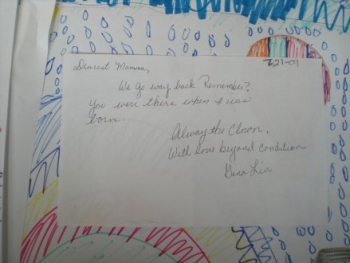 7-21-03
Dearest Mamma,
We go way back Remember?
You were there when I was
born
Always the Clown,
With love beyond condition